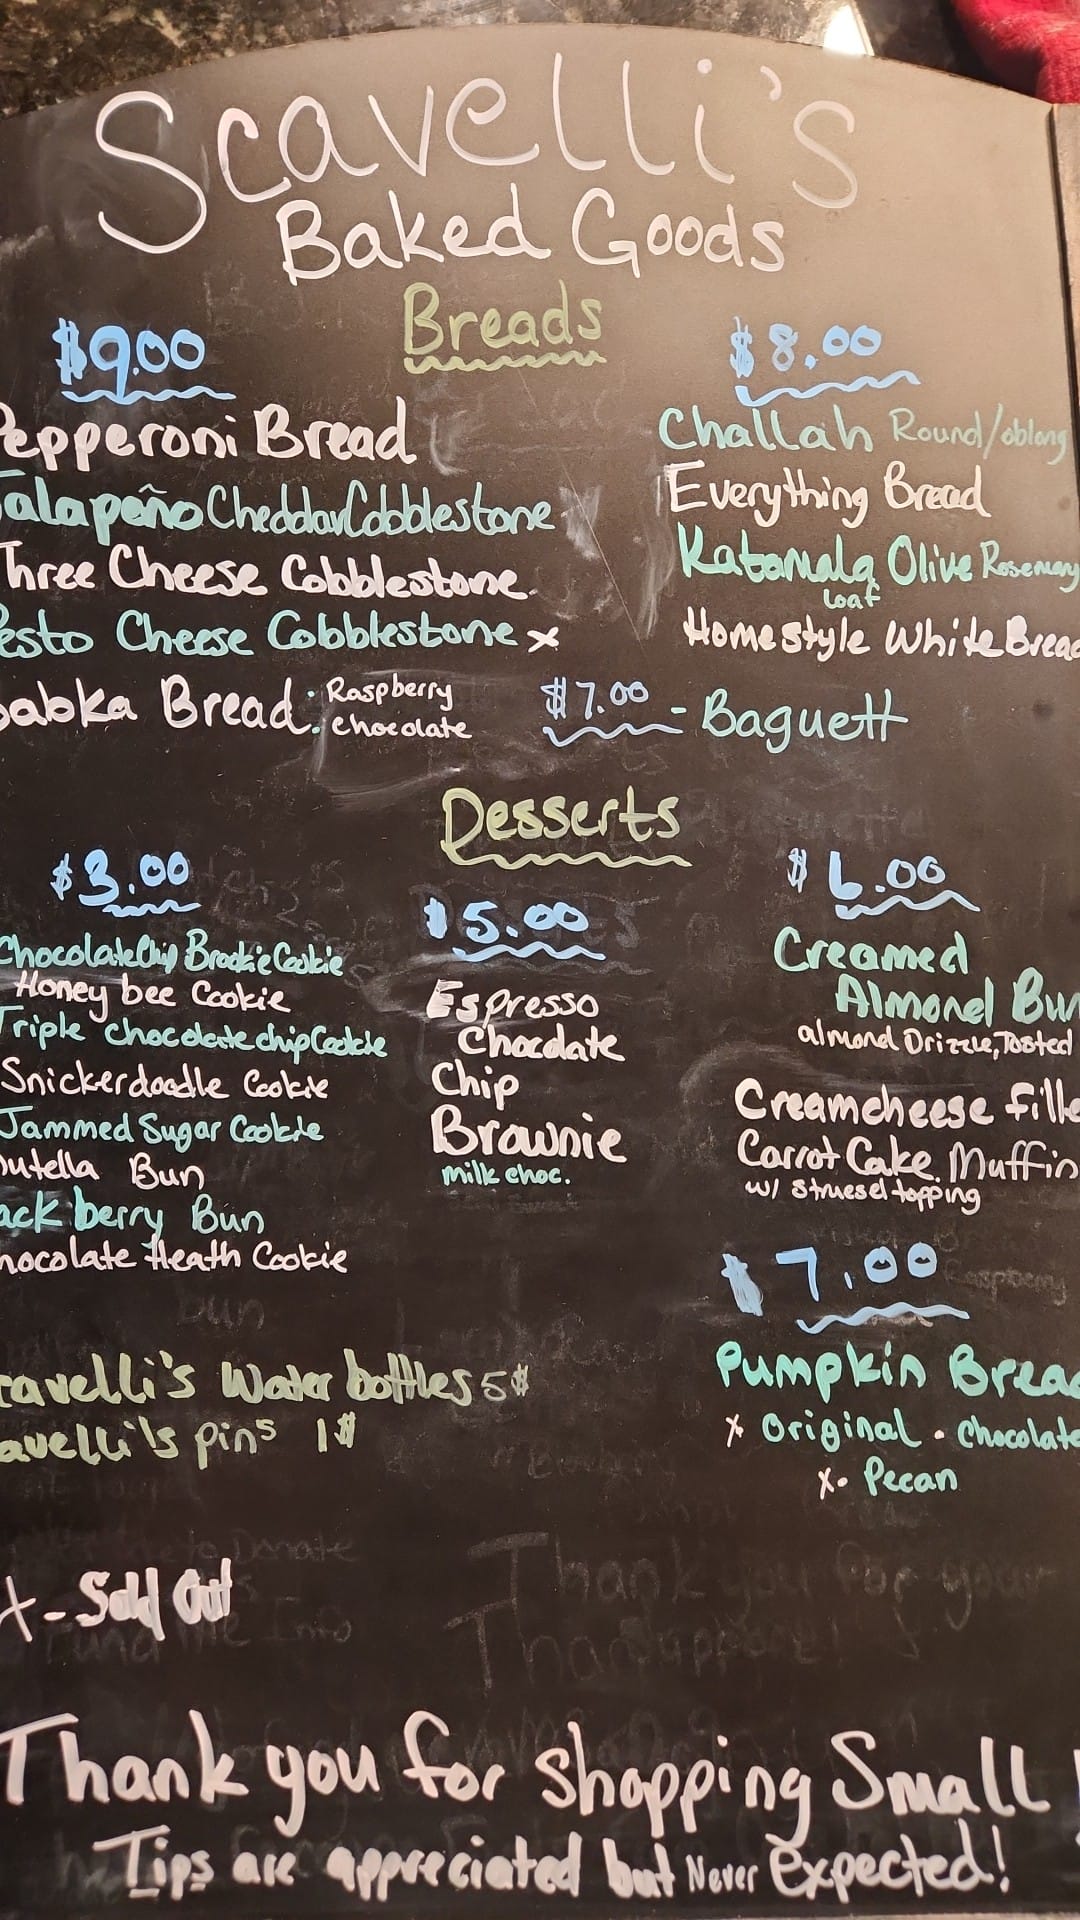 Scavelli's
Baked Goods
Breads
$9.00
Pepperoni Bread
Jalapeño Cheddar Cobblestone
Three Cheese Cobblestone
esto Cheese Cobblestone x
abka Bread: Raspberry
Chocolate
$8.00
Challah Round/oblong
Everything Bread
Katamala Olive Rosemary
Loaf
Homestyle White Bread
$7.00 - Baguett
Desserts
$3.00
Chocolate Chip Brookie Cookie
Honey bee Cookie
Triple chocolate chip Cookie
Snickerdoodle Cookie
Jammed Sugar Cookie
utella Bun
ack berry Bun
hocolate Heath Cookie
$5.00
Espresso
Chocolate
Chip
Brownie
milk choc.
$6.00
Creamed
Almond Bun
almond Drizzle, Tosted
Creamcheese fille
Carrot Cake Muffin
w/ struesel topping
$7.00
Pumpkin Brea
x Original • Chocolate
x • Pecan
cavelli's Water bottles 5$
avelli's pins 1$
x - Sold Out
Thank you for shopping Small!
Tips are appreciated but Never Expected!